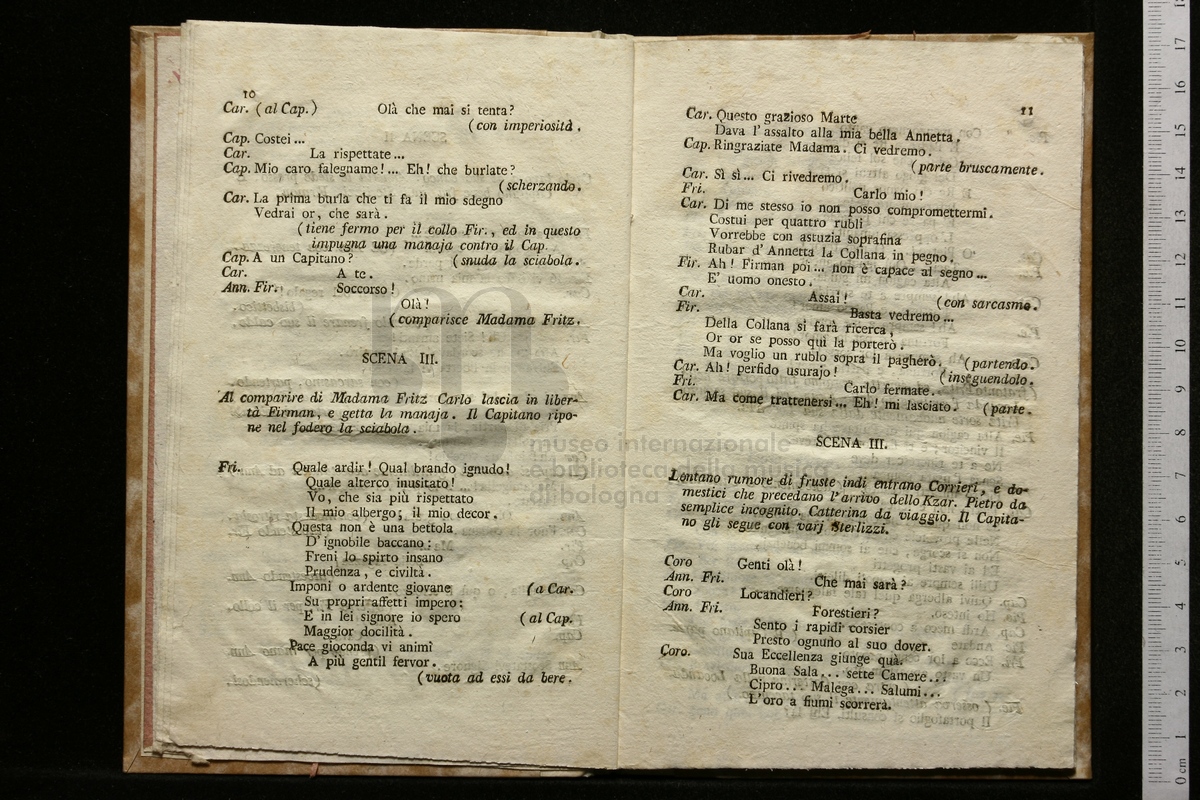 10
Car. (al Cap.) Olà che mai si tenta?
(con imperiosità.
Cap. Costei...
Car. La rispettate...
Cap. Mio caro falegname!... Eh! che burlate?
(scherzando.
Car. La prima burla che ti fa il mio sdegno
Vedrai or, che sarà.
(tiene fermo per il collo Fir., ed in questo
impugna una manaja contro il Cap.
Cap. A un Capitano? (snuda la sciabola.
Car. A te.
Ann. Fir. Soccorso!
Olà!
(comparisce Madama Fritz.
SCENA III.
Al comparire di Madama Fritz Carlo lascia in liber-
tà Firman, e getta la manaja. Il Capitano ripo-
ne nel fodero la sciabola.
Fri. Quale ardir! Qual brando ignudo!
Quale alterco inusitato!
Vo, che sia più rispettato
Il mio albergo; il mio decor.
Questa non è una bettola
D'ignobile baccano:
Freni lo spirto insano
Prudenza, e civiltà.
Imponi o ardente giovane (a Car.
Su propri affetti impero:
E in lei signore io spero (al Cap.
Maggior docilità.
Pace gioconda vi animi
A più gentil fervor.
(vuota ad essi da bere.
11
Car. Questo grazioso Marte
Dava l'assalto alla mia bella Annetta.
Cap. Ringraziate Madama. Ci vedremo.
(parte bruscamente.
Car. Sì sì... Ci rivedremo.
Fri. Carlo mio!
Car. Di me stesso io non posso compromettermi.
Costui per quattro rubli
Vorrebbe con astuzia soprafina
Rubar d'Annetta la Collana in pegno.
Fir. Ah! Firman poi... non è capace al segno...
E' uomo onesto.
Car. Assai! (con sarcasmo.
Fir. Basta vedremo...
Della Collana si farà ricerca,
Or or se posso quì la porterò.
Ma voglio un rublo sopra il pagherò. (partendo.
Car. Ah! perfido usurajo! (inseguendolo.
Fri. Carlo fermate.
Car. Ma come trattenersi... Eh! mi lasciato. (parte.
SCENA III.
Lontano rumore di fruste indi entrano Corrieri, e do-
mestici che precedano l'arrivo dello Kzar. Pietro da
semplice incognito. Catterina da viaggio. Il Capita-
no gli segue con varj Sterlizzi.
Coro Genti olà!
Ann. Fri. Che mai sarà?
Coro Locandieri?
Ann. Fri. Forestieri?
Sento i rapidi corsier
Presto ognuno al suo dover.
Coro. Sua Eccellenza giunge quà.
Buona Sala... sette Camere...
Cipro... Malega... Salumi...
L'oro a fiumi scorrerà.
museo internazionale
e biblioteca della musica
di bologna